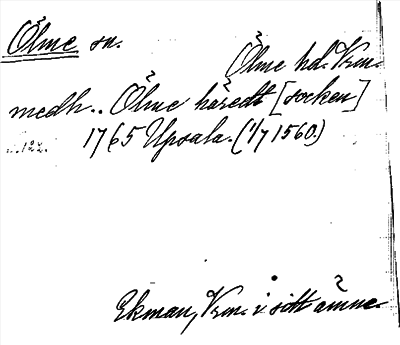 Ölme sn.
Ölme hd. Vrm.
medh.. Ölme häredt [socken]
1765 Upsala. (1/7 1560.)
Ekman, Vrm. i sitt ämne.